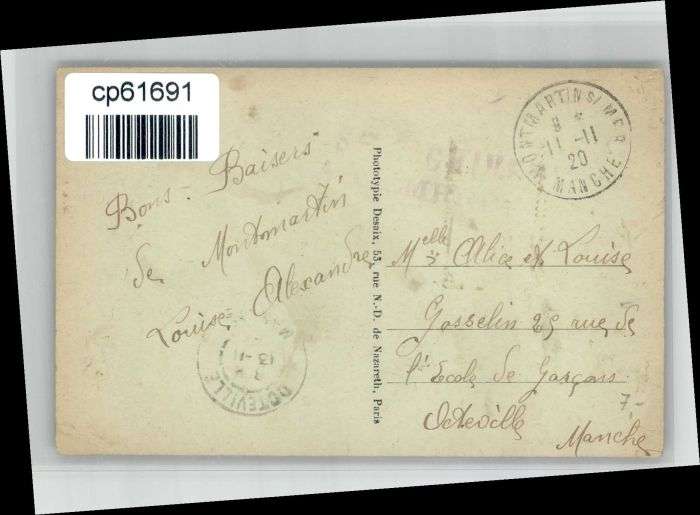 cp61691
MONTMARTIN S/ MER
11 -11
20
MANCHE
Bons - Baisers
de Montmartin
Louise Alexandre
OCTEVILLE
13 -11
Phototypie Desaix, 53, rue N.-D. de Nazareth, Paris
Melle s Alice et Louise
Gosselin 29 rue de
l'École de Garçons
Octeville
Manche
7-